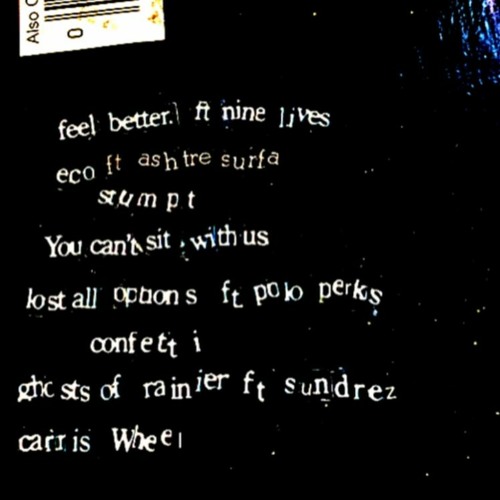 Also
0
feel better. ft nine lives
eco ft ashtre surfa
stumpt
You can't sit with us
lost all options ft polo perks
confetti
ghosts of rainier ft sundrez
carris Wheel